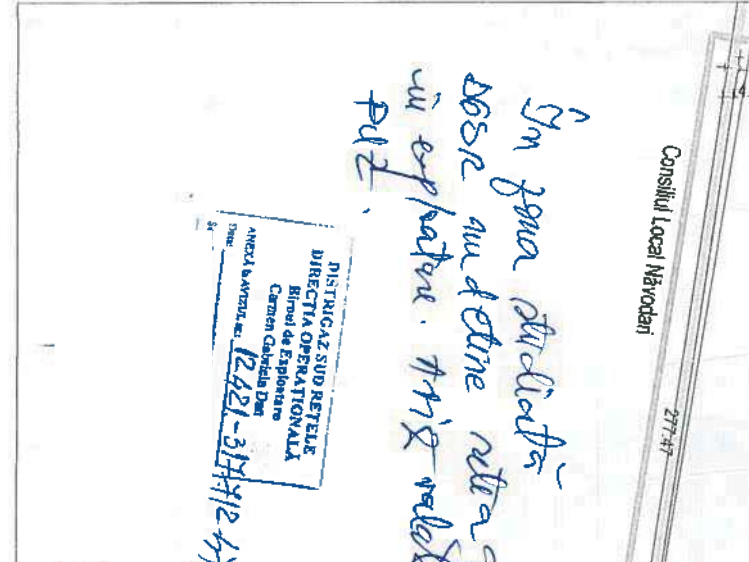 Consiliul Local Năvodari
277.47
În zona studiată
DGSR nu deține rețea
în exploatare. Aviz valab
PUZ.
DISTRIGAZ SUD RETELE
DIRECTIA OPERATIONALĂ
Biroul de Exploatare
Carmen Gabriela Dan
ANEXĂ la AVIZUL nr. 12.421-317.712
Data: